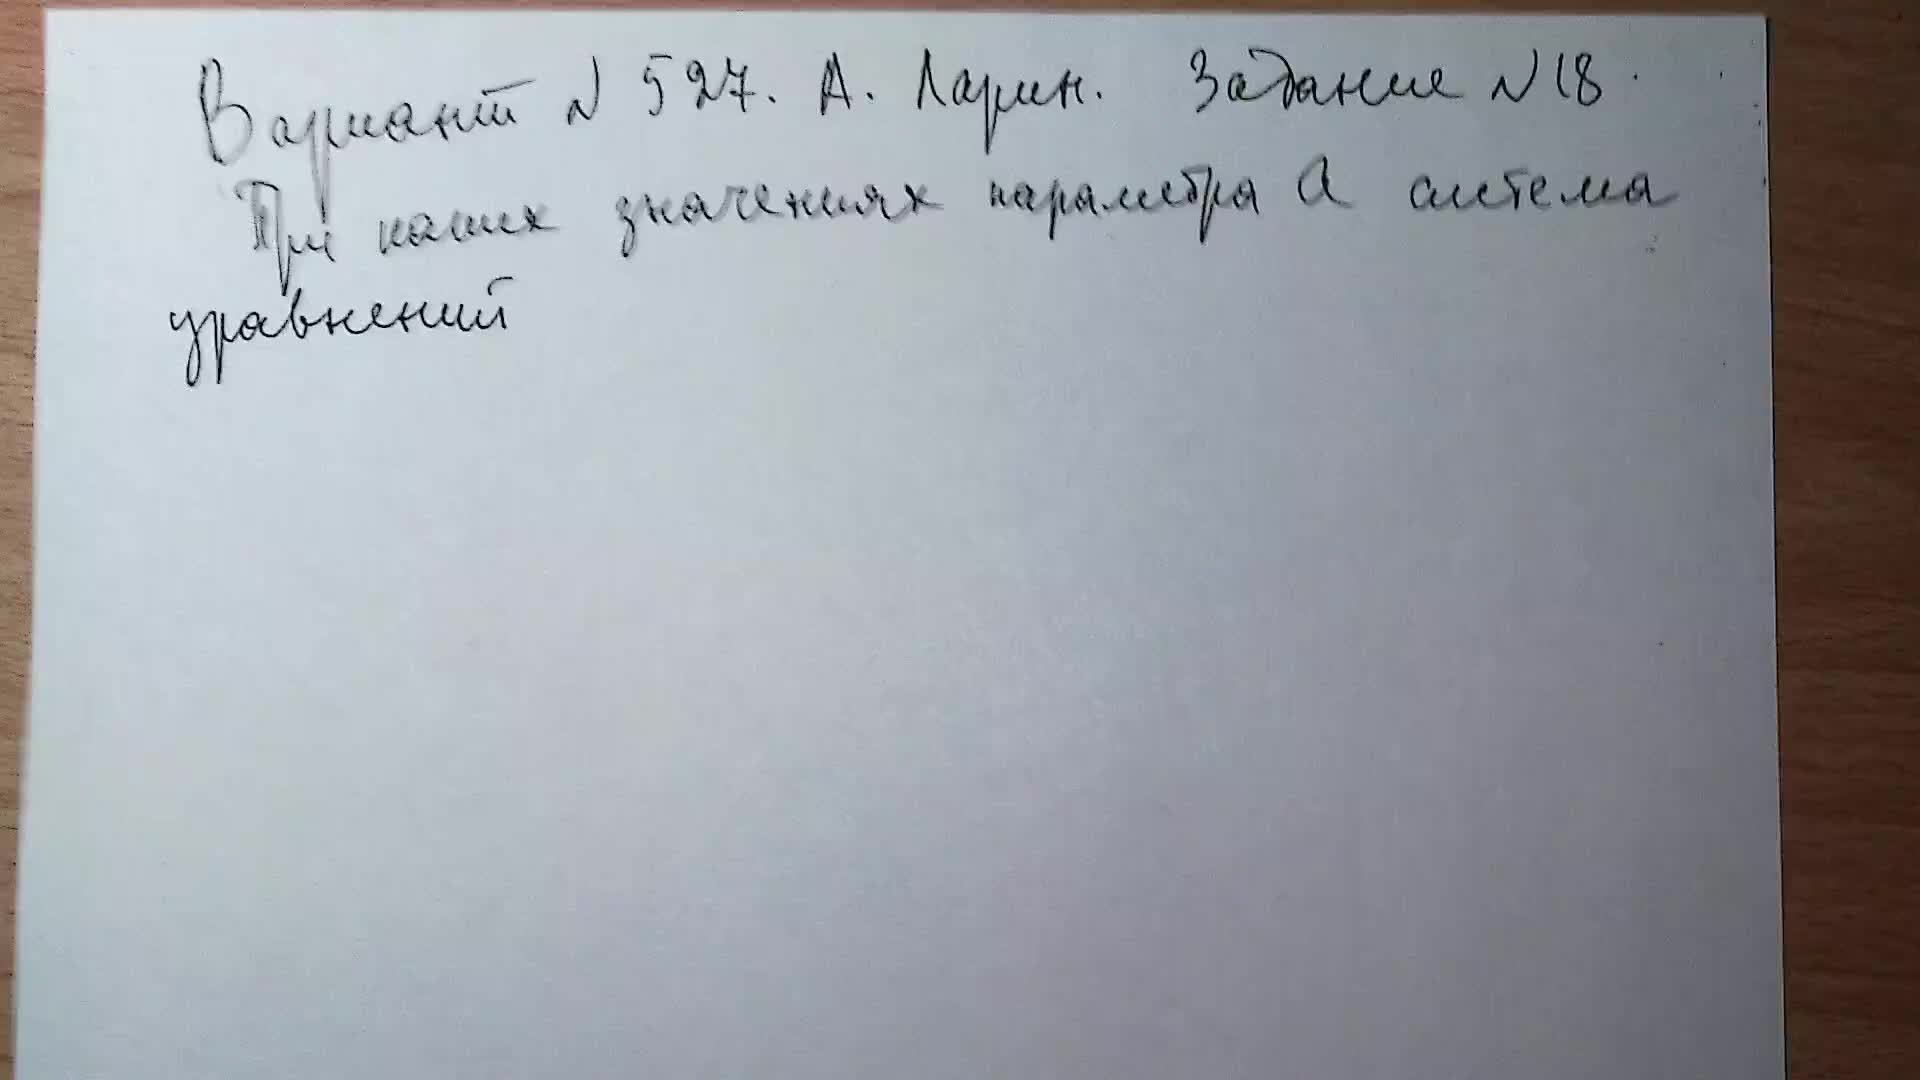 Вариант N 527. А. Ларин. Задание N18.
При каких значениях параметра а система
уравнений